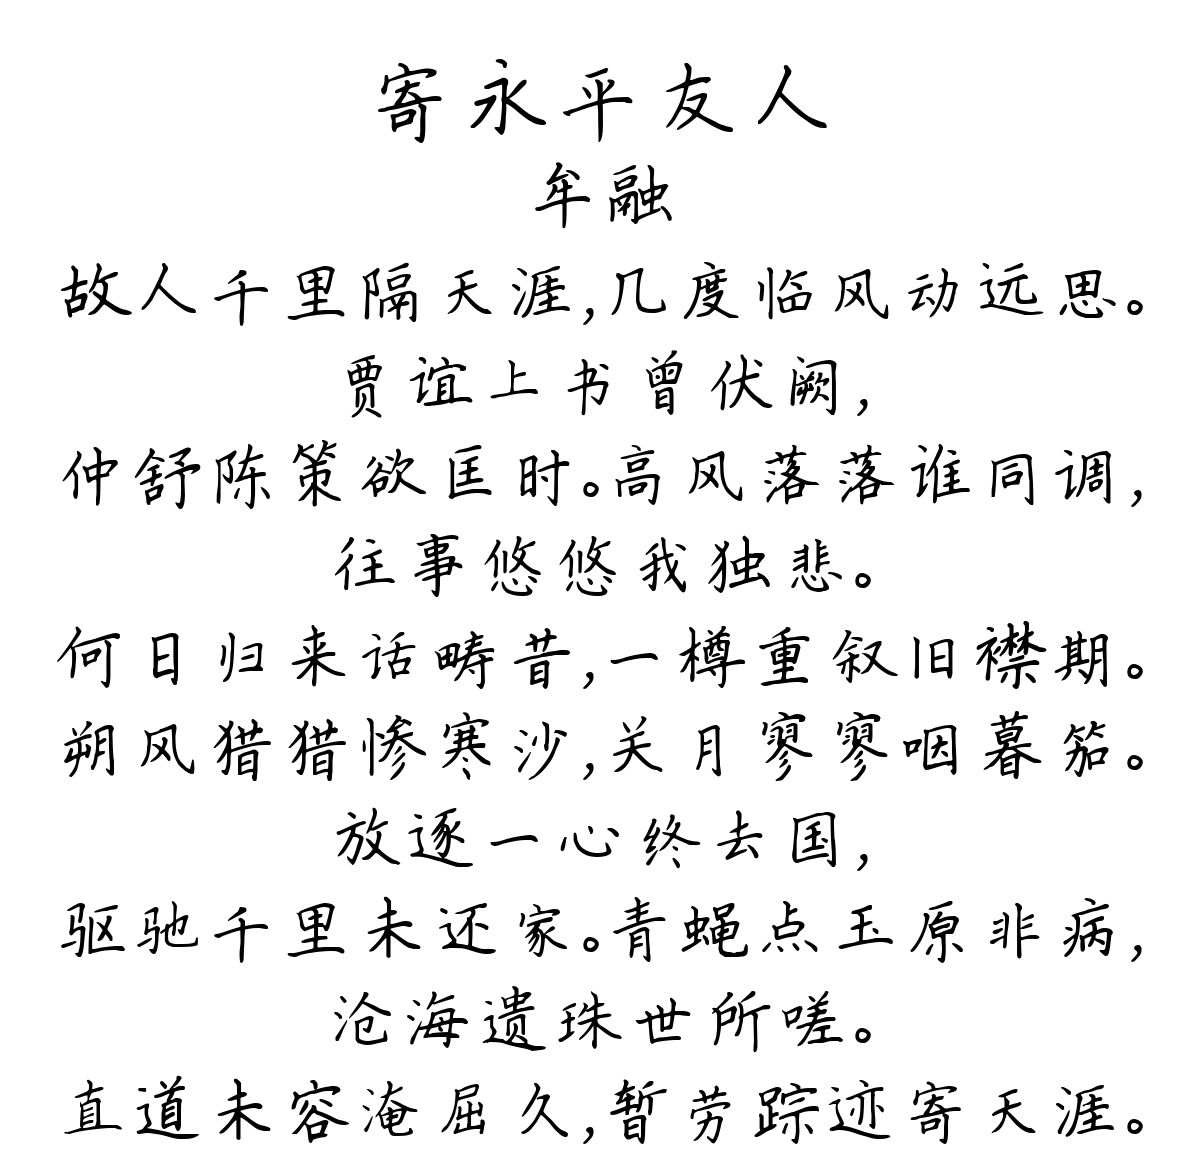 寄永平友人
牟融
故人千里隔天涯,几度临风动远思。
贾谊上书曾伏阙,
仲舒陈策欲匡时。高风落落谁同调,
往事悠悠我独悲。
何日归来话畴昔,一樽重叙旧襟期。
朔风猎猎惨寒沙,关月寥寥咽暮笳。
放逐一心终去国,
驱驰千里未还家。青蝇点玉原非病,
沧海遗珠世所嗟。
直道未容淹屈久,暂劳踪迹寄天涯。